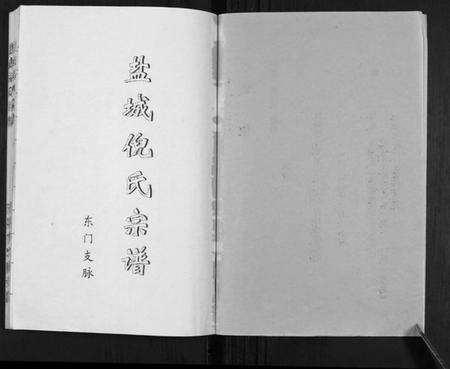 盐城倪氏宗谱
东门支脉